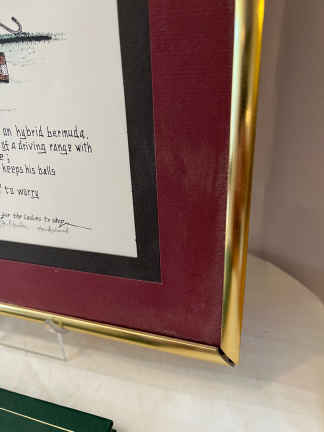 on hybrid bermuda.
of a driving range with
e;
keeps his balls
to worry
for the Ladies to stop